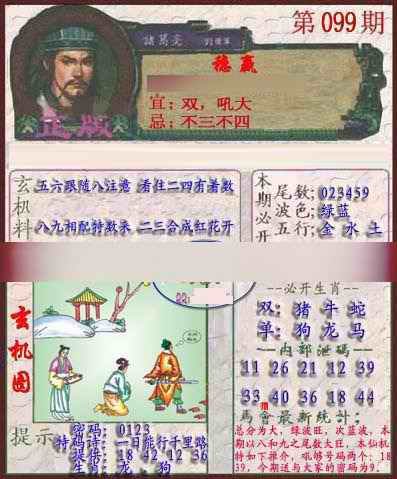 第099期
諸葛亮
劉備軍
稳赢
宜：双，吼大
忌：不三不四
正版
玄机料
五六跟随八注意 看住二四有着数
八九相配特数来 二三合成红花开
本期必开
尾数：023459
波色：绿蓝
五行：金 水 土
必开生肖
双：猪 牛 蛇
单：狗 龙 马
内部泄码
11 26 21 12 39
33 40 36 18 44
马會最新统计：
总分为大，绿波旺，次蓝波，本期以八和九之尾数大旺，本仙机特如下推介，吼够号码两个：18 39，今期送与大家的密码为9.
玄机图
提示
密码：0123
特码诗：一日能行千里路
提倍：18 42 12 36
生肖：龙 狗